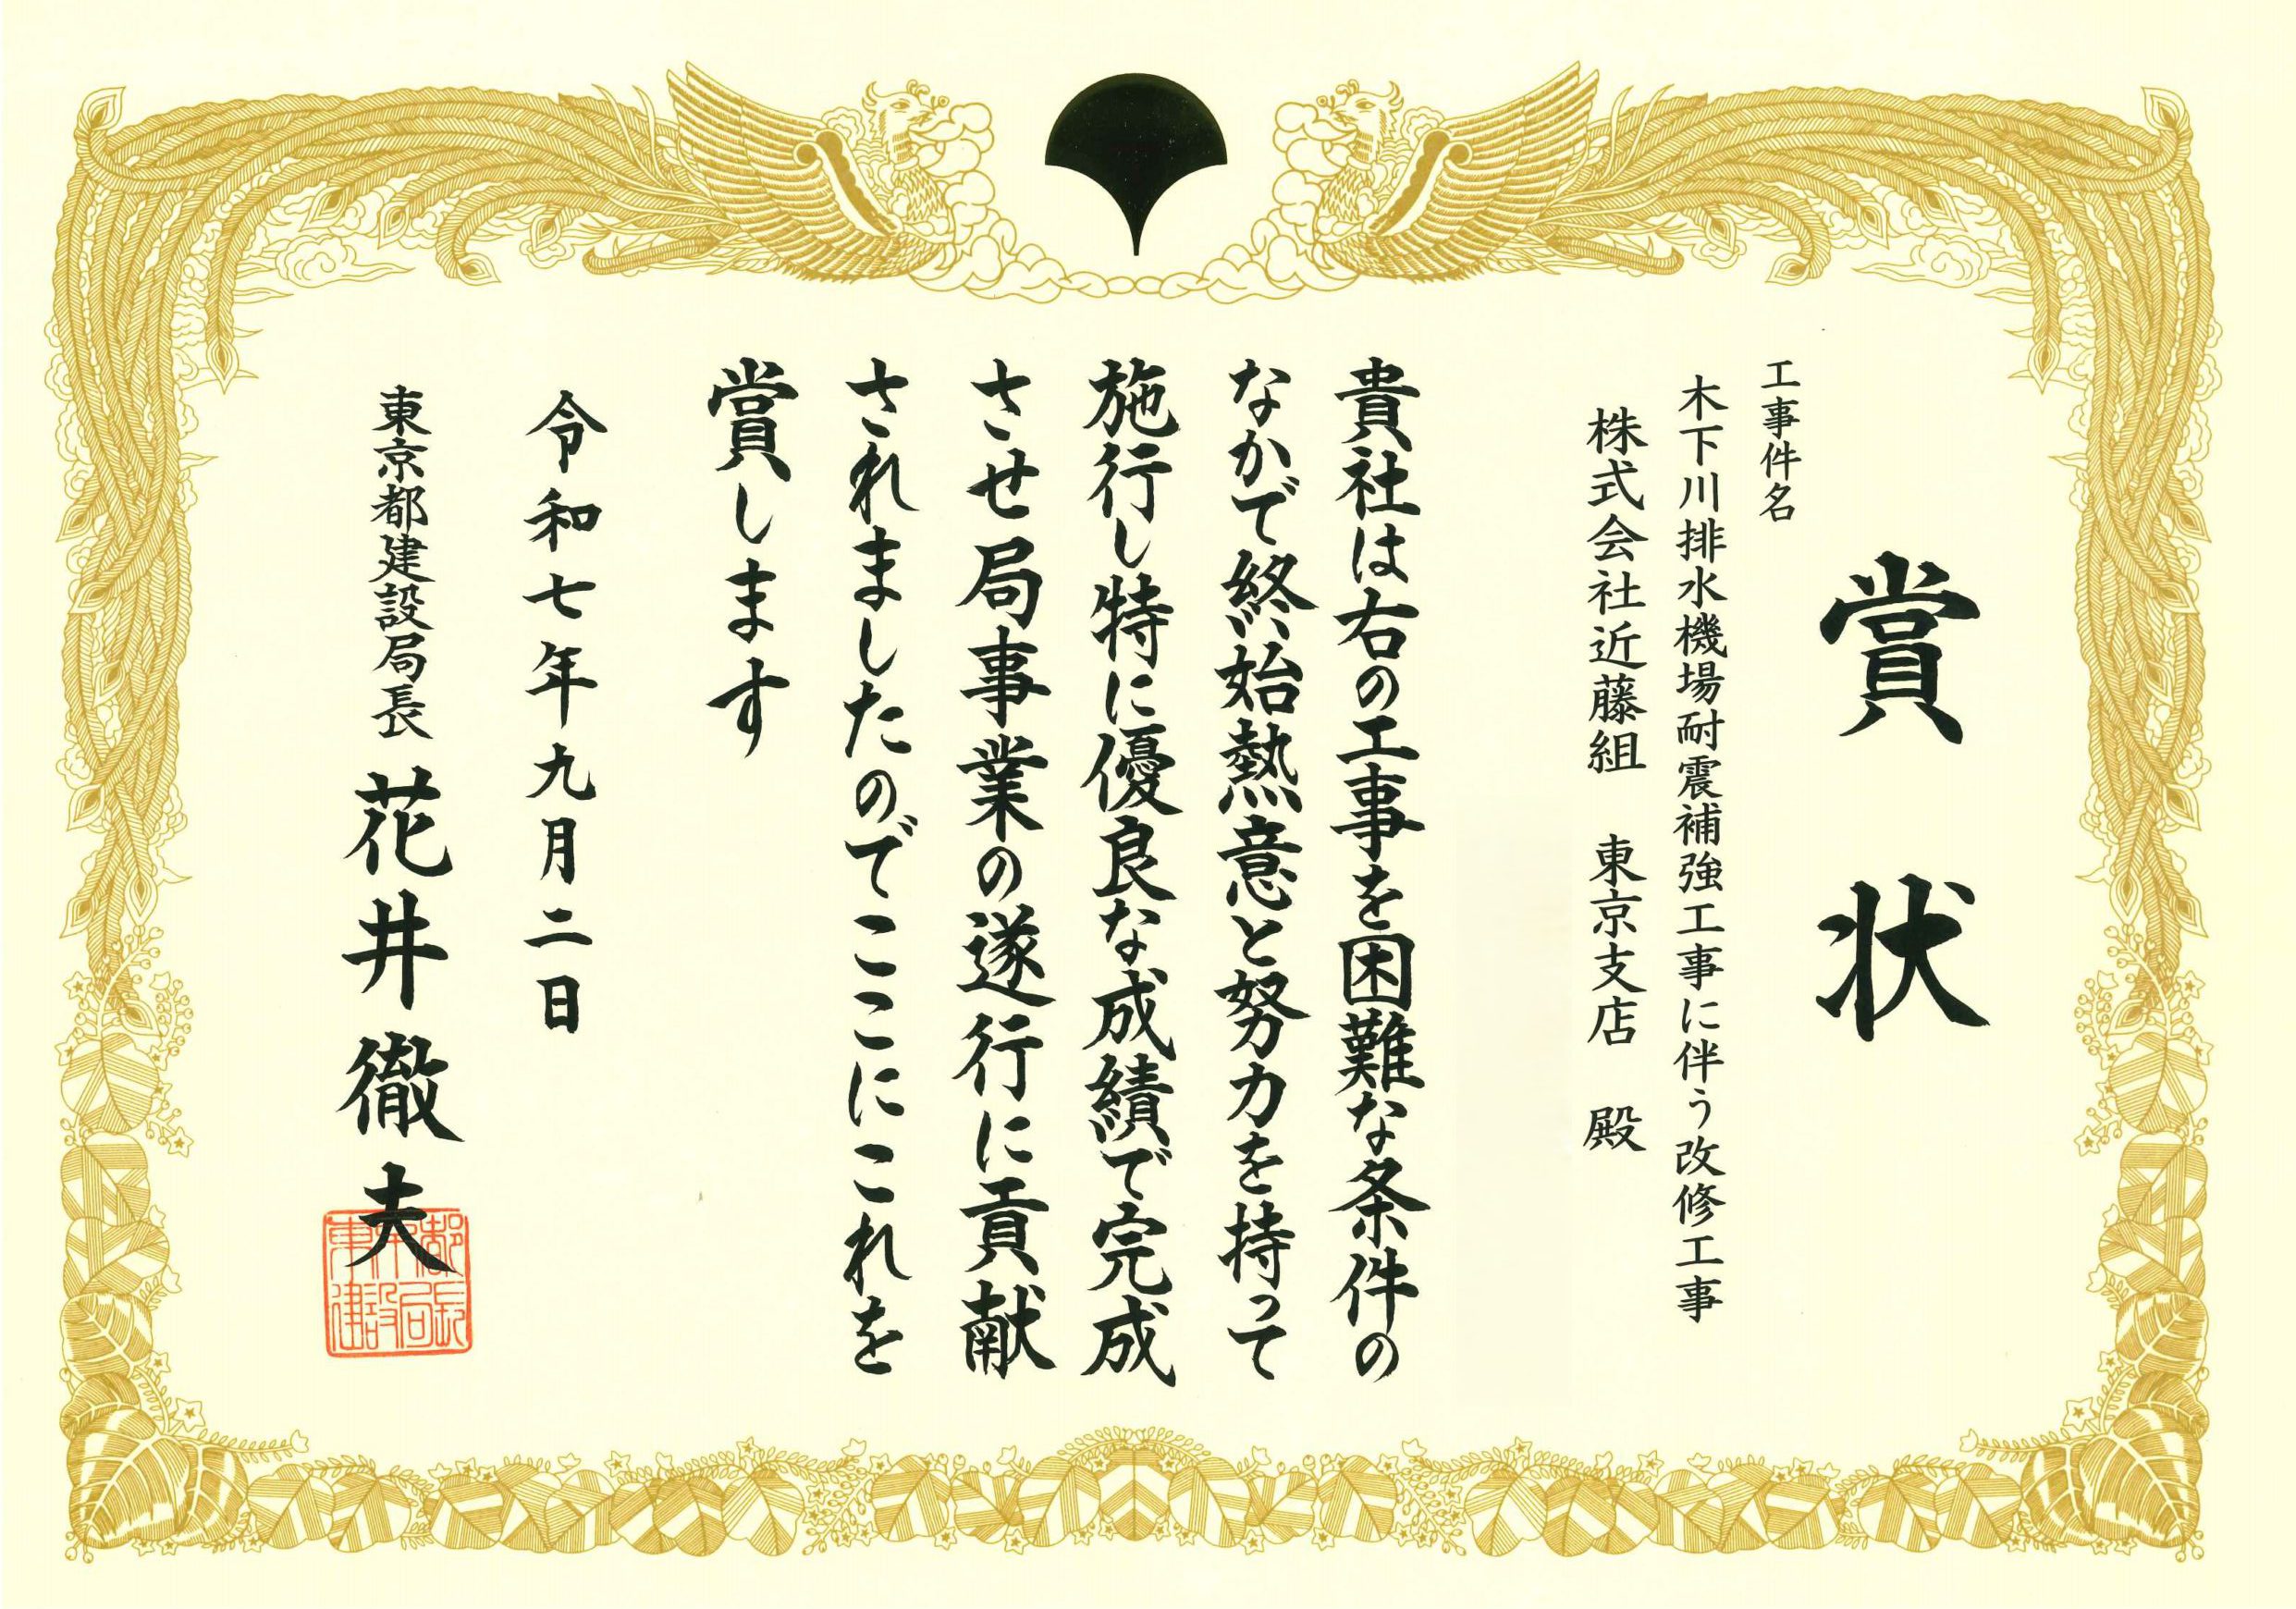 賞状
工事件名
木下川排水機場耐震補強工事に伴う改修工事
株式会社近藤組 東京支店 殿
貴社は右の工事を困難な条件の
なかで終始熱意と努力を持って
施行し特に優良な成績で完成
させ局事業の遂行に貢献
されましたのでここにこれを
賞します
令和七年九月二日
東京都建設局長 花井徹夫
東京都
建設局長